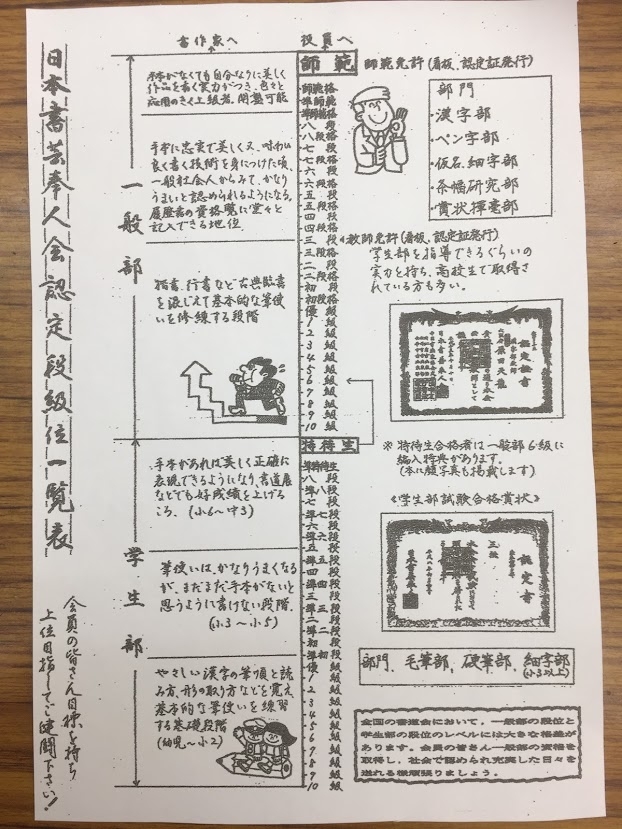 日本書芸奉人会認定段級位一覧表
会員の皆さん目標を持ち
上位目指してご健闘下さい!
書作家へ
役員へ
一般部
手本がなくても自分なりに美しく
作品を書く実力がつき、色々と
応用のきく上級者。開塾可能
手本に忠実で美しく又、味わい
良く書く技術を身につけた頃。
一般社会人からみて、かなり
うまいと認められるようになる。
履歴書の資格覧に堂々と
記入できる地位。
楷書、行書など古典臨書
を混じえて基本的な筆使
いを修練する段階
学生部
手本があれば美しく正確に
表現できるようになり、書道展
などでも好成績を上げる
ころ。(小6~中3)
筆使いは、かなりうまくなる
が、まだまだ手本がないと
思うように書けない段階。
(小3~小5)
やさしい漢字の筆順と読
み方、形の取り方などを覚え
基本的な筆使いを練習
する基礎段階
(幼児~小2)
師範
師範格
準師範
準師範格
八段
八段格
七段
七段格
六段
六段格
五段
五段格
四段
四段格
三段
三段格
二段
二段格
初段
初段格
優級
1級
2級
3級
4級
5級
6級
7級
8級
9級
10級
特待生
準特待生
八段
準八段
七段
準七段
六段
準六段
五段
準五段
四段
準四段
三段
準三段
二段
準二段
初段
準初段
優級
1級
2級
3級
4級
5級
6級
7級
8級
9級
10級
師範免許(看板、認定証発行)
部門
・漢字部
・ペン字部
・仮名、細字部
・条幅研究部
・賞状揮毫部
教師免許(看板、認定証発行)
学生部を指導できるぐらいの
実力を持ち、高校生で取得さ
れている方も多い。
認定証書
※特待生合格者は一般部6級に
編入特典があります。
(本に顔写真も掲載します)
《学生部試験合格賞状》
認定書
部門、毛筆部、硬筆部、細字部
(小3以上)
全国の書道会において、一般部の段位と
学生部の段位のレベルには大きな格差が
あります。会員の皆さん一般部の資格を
取得し、社会で認められ充実した日々を
送れる様頑張りましょう。